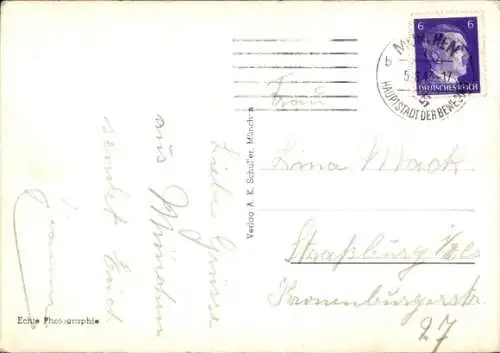 Liebe Grüsse
aus München
sendet Euch
Verlag A. K. Schuller, München
Echte Photographie
6 6
DEUTSCHES REICH
MÜNCHEN
b
HAUPTSTADT DER BEWE
Frau
Lina Mack
Straßburg i/Els
Kronenburgerstr.
27